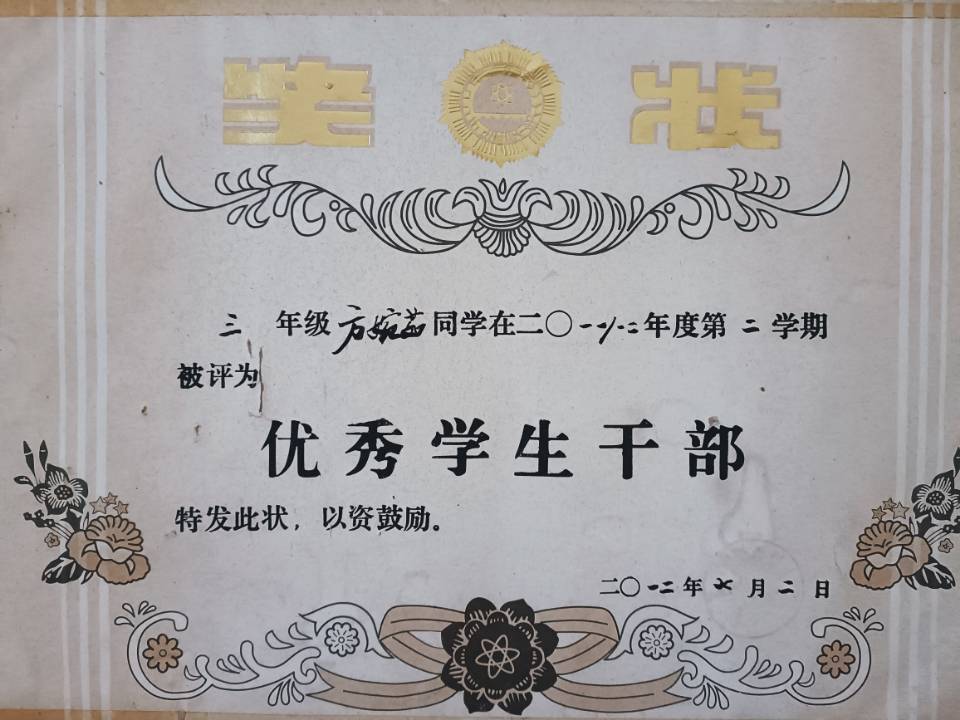 奖 状
三 年级方婉茹同学在二〇一一/一二年度第二学期
被评为
优秀学生干部
特发此状，以资鼓励。
二〇一二年七月二日